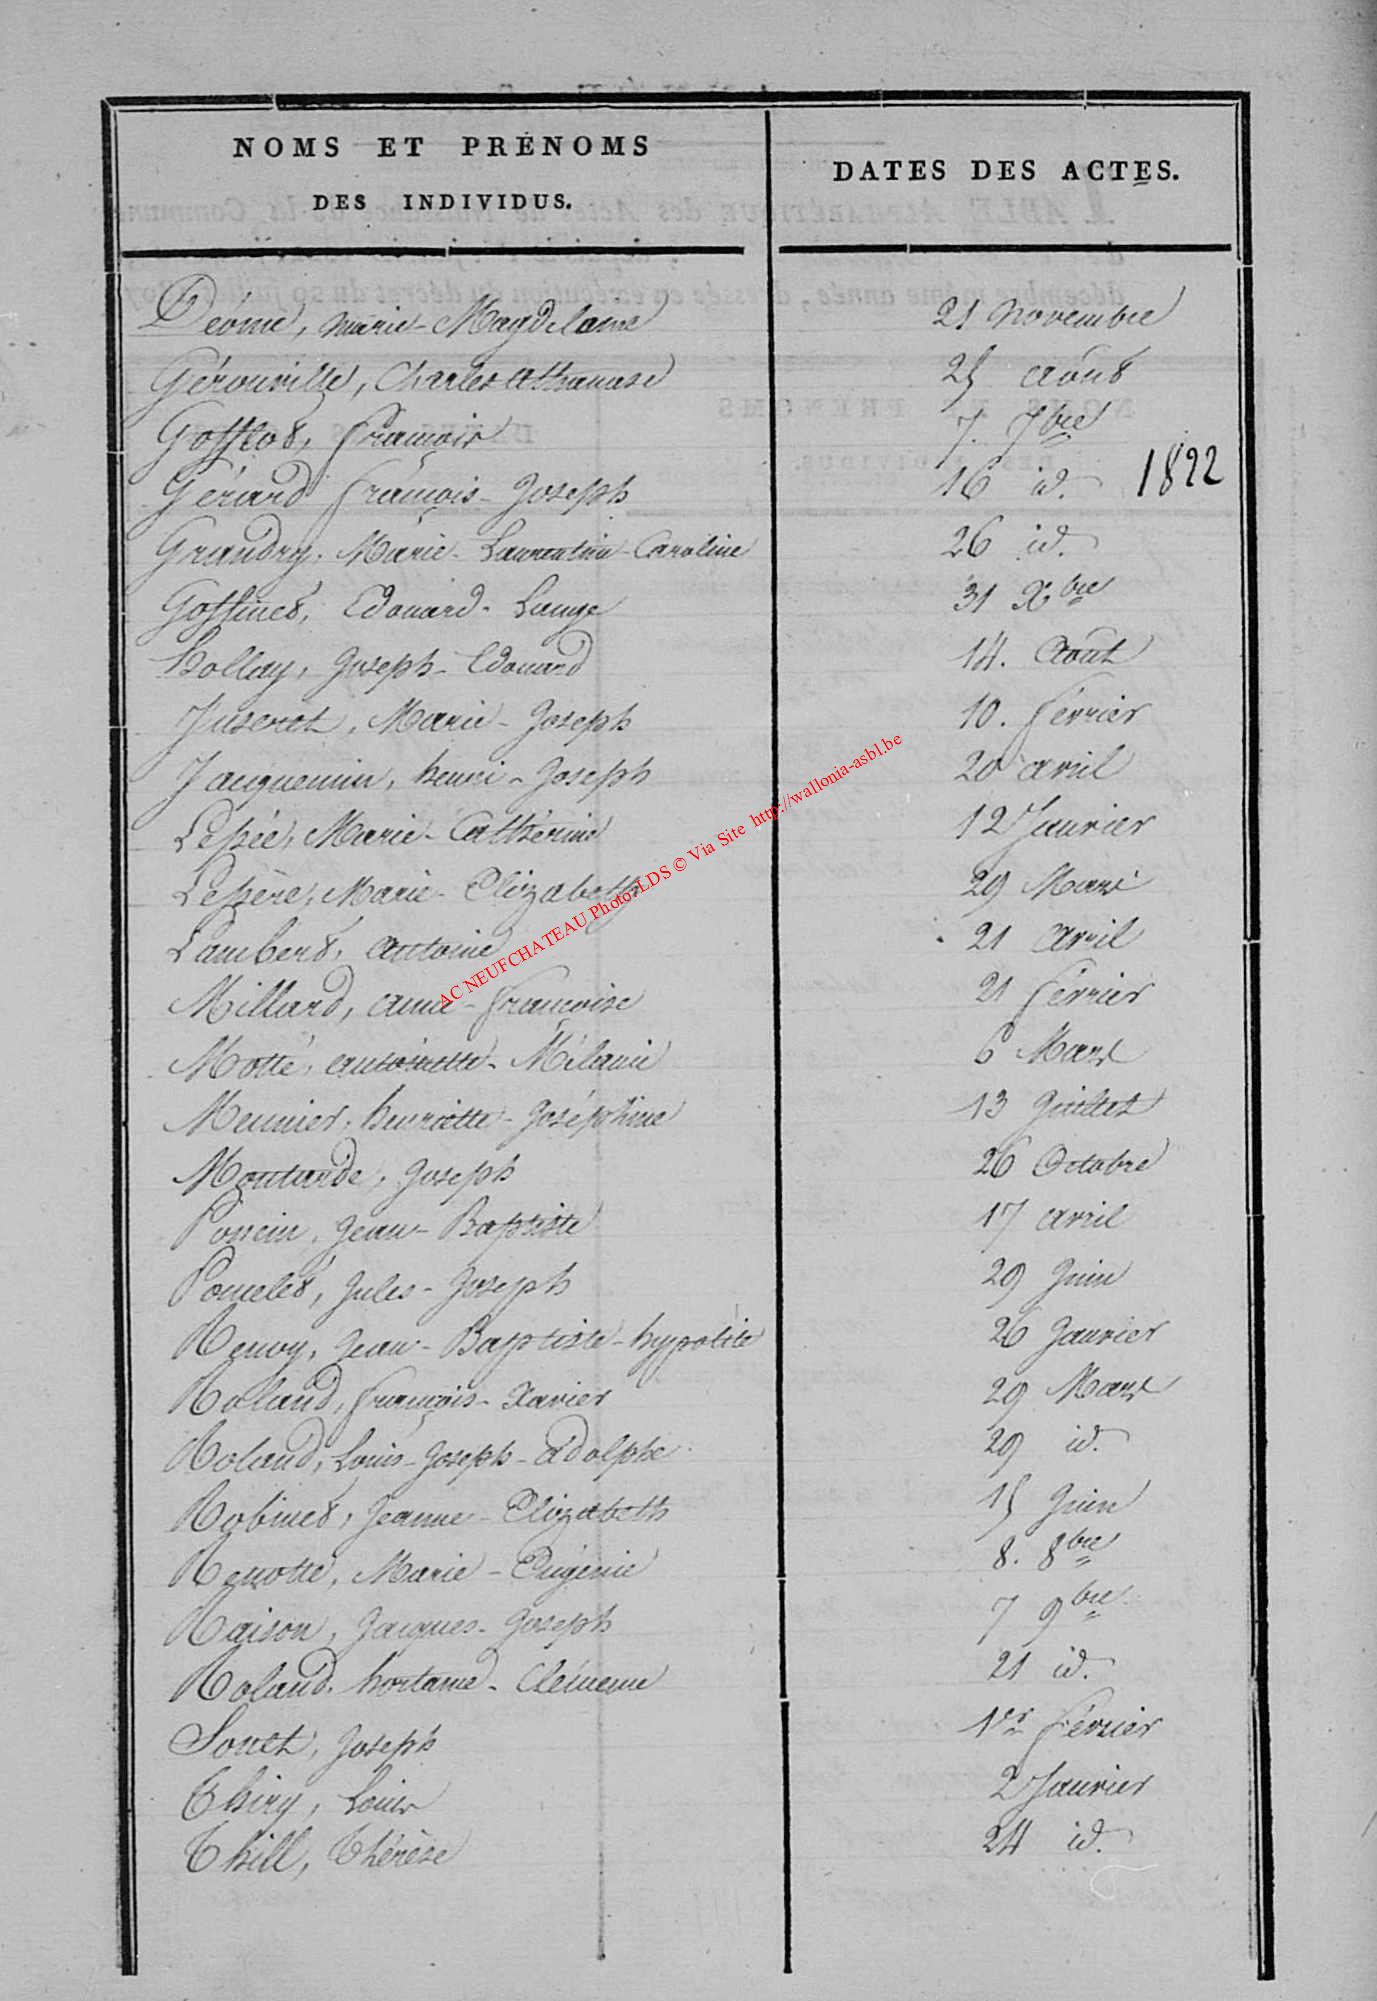 NOMS ET PRÉNOMS
DES INDIVIDUS.
DATES DES ACTES.
Déome, Marie-Magdelaine 21 Novembre
Gérouville, Charles Athanase 25 août
Gofflot, François 7. 7bre
Gérard François-Joseph 16 id. 1822
Grandry, Marie-Laurentine-Caroline 26 id.
Goffinet, Edouard-Lange 31 Xbre
Hollay, Joseph-Edouard 14. Août
Juseret, Marie-Joseph 10. février
Jacquemin, henri-Joseph 20 avril
Lepée, Marie-Cathérine 12 Janvier
Lepère, Marie-Elizabeth 29 Mars
Lambert, antoine 21 avril
Millard, anne-françoise 21 février
Motté, antoinette-Mélanie 6 Mars
Meunier, henriette-Joséphine 13 Juillet
Moutarde, Joseph 26 Octobre
Poncin, Jean-Baptiste 17 avril
Poncelet, Jules-Joseph 29 Juin
Renoy, Jean-Baptiste-hyppolite 26 Janvier
Roland, françois-Xavier 29 Mars
Roland, Louis-Joseph-adolphe 29 id.
Robinet, Jeanne-Elizabeth 15 Juin
Renotte, Marie-Eugénie 8. 8bre
Raison, Jacques-Joseph 7 9bre
Roland, hortance-Clémence 21 id.
Souet, Joseph 1er février
Thiry, Louis 2 Janvier
Thill, Thérèse 24 id.
AC NEUFCHATEAU Photo: LDS © Via Site http://wallonia-asbl.be